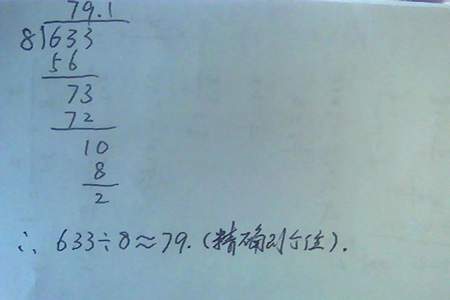 79.1
8)633
56
73
72
10
8
2
∴ 633÷8≈79.(精确到个位).